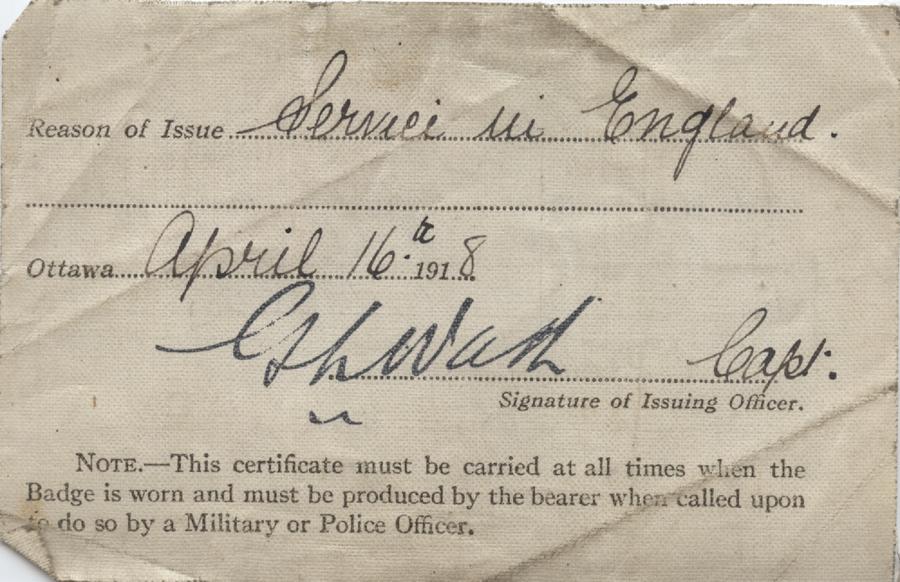 Reason of Issue Service in England.
Ottawa April 16th 1918
Capt.
Signature of Issuing Officer.
NOTE.—This certificate must be carried at all times when the
Badge is worn and must be produced by the bearer when called upon
to do so by a Military or Police Officer.